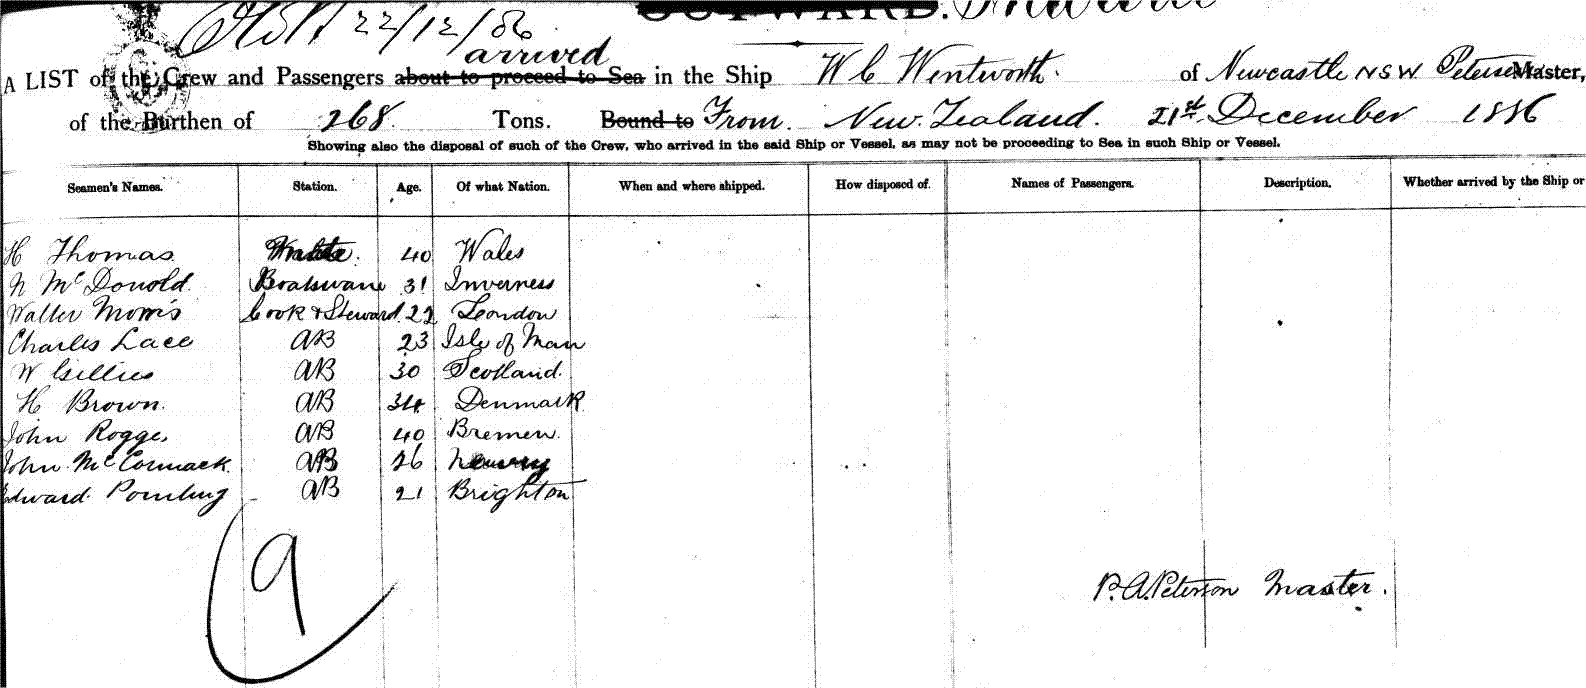 OUTWARD. Inward
22/12/86
arrived
A LIST of the Crew and Passengers about to proceed to Sea in the Ship W C Wentworth. of Newcastle NSW Petersen Master,
of the Burthen of 268 Tons. Bound to From. New. Zealand. 21st December 1886
Showing also the disposal of such of the Crew, who arrived in the said Ship or Vessel, as may not be proceeding to Sea in such Ship or Vessel.
Seamen's Names. Station. Age. Of what Nation. When and where shipped. How disposed of. Names of Passengers. Description. Whether arrived by the Ship or
H Thomas 40 Wales
N McDonold Boatswane 31 Inverness
Walter Morris Cook & Steward 22 London
Charles Lace AB 23 Isle of Man
W Gillies AB 30 Scotland.
H Brown. AB 34 Denmark
John Rogge, AB 40 Bremen.
John McCormack. AB 26 Newry
Edward AB 21 Brighton
9
P. A. Peterson Master.